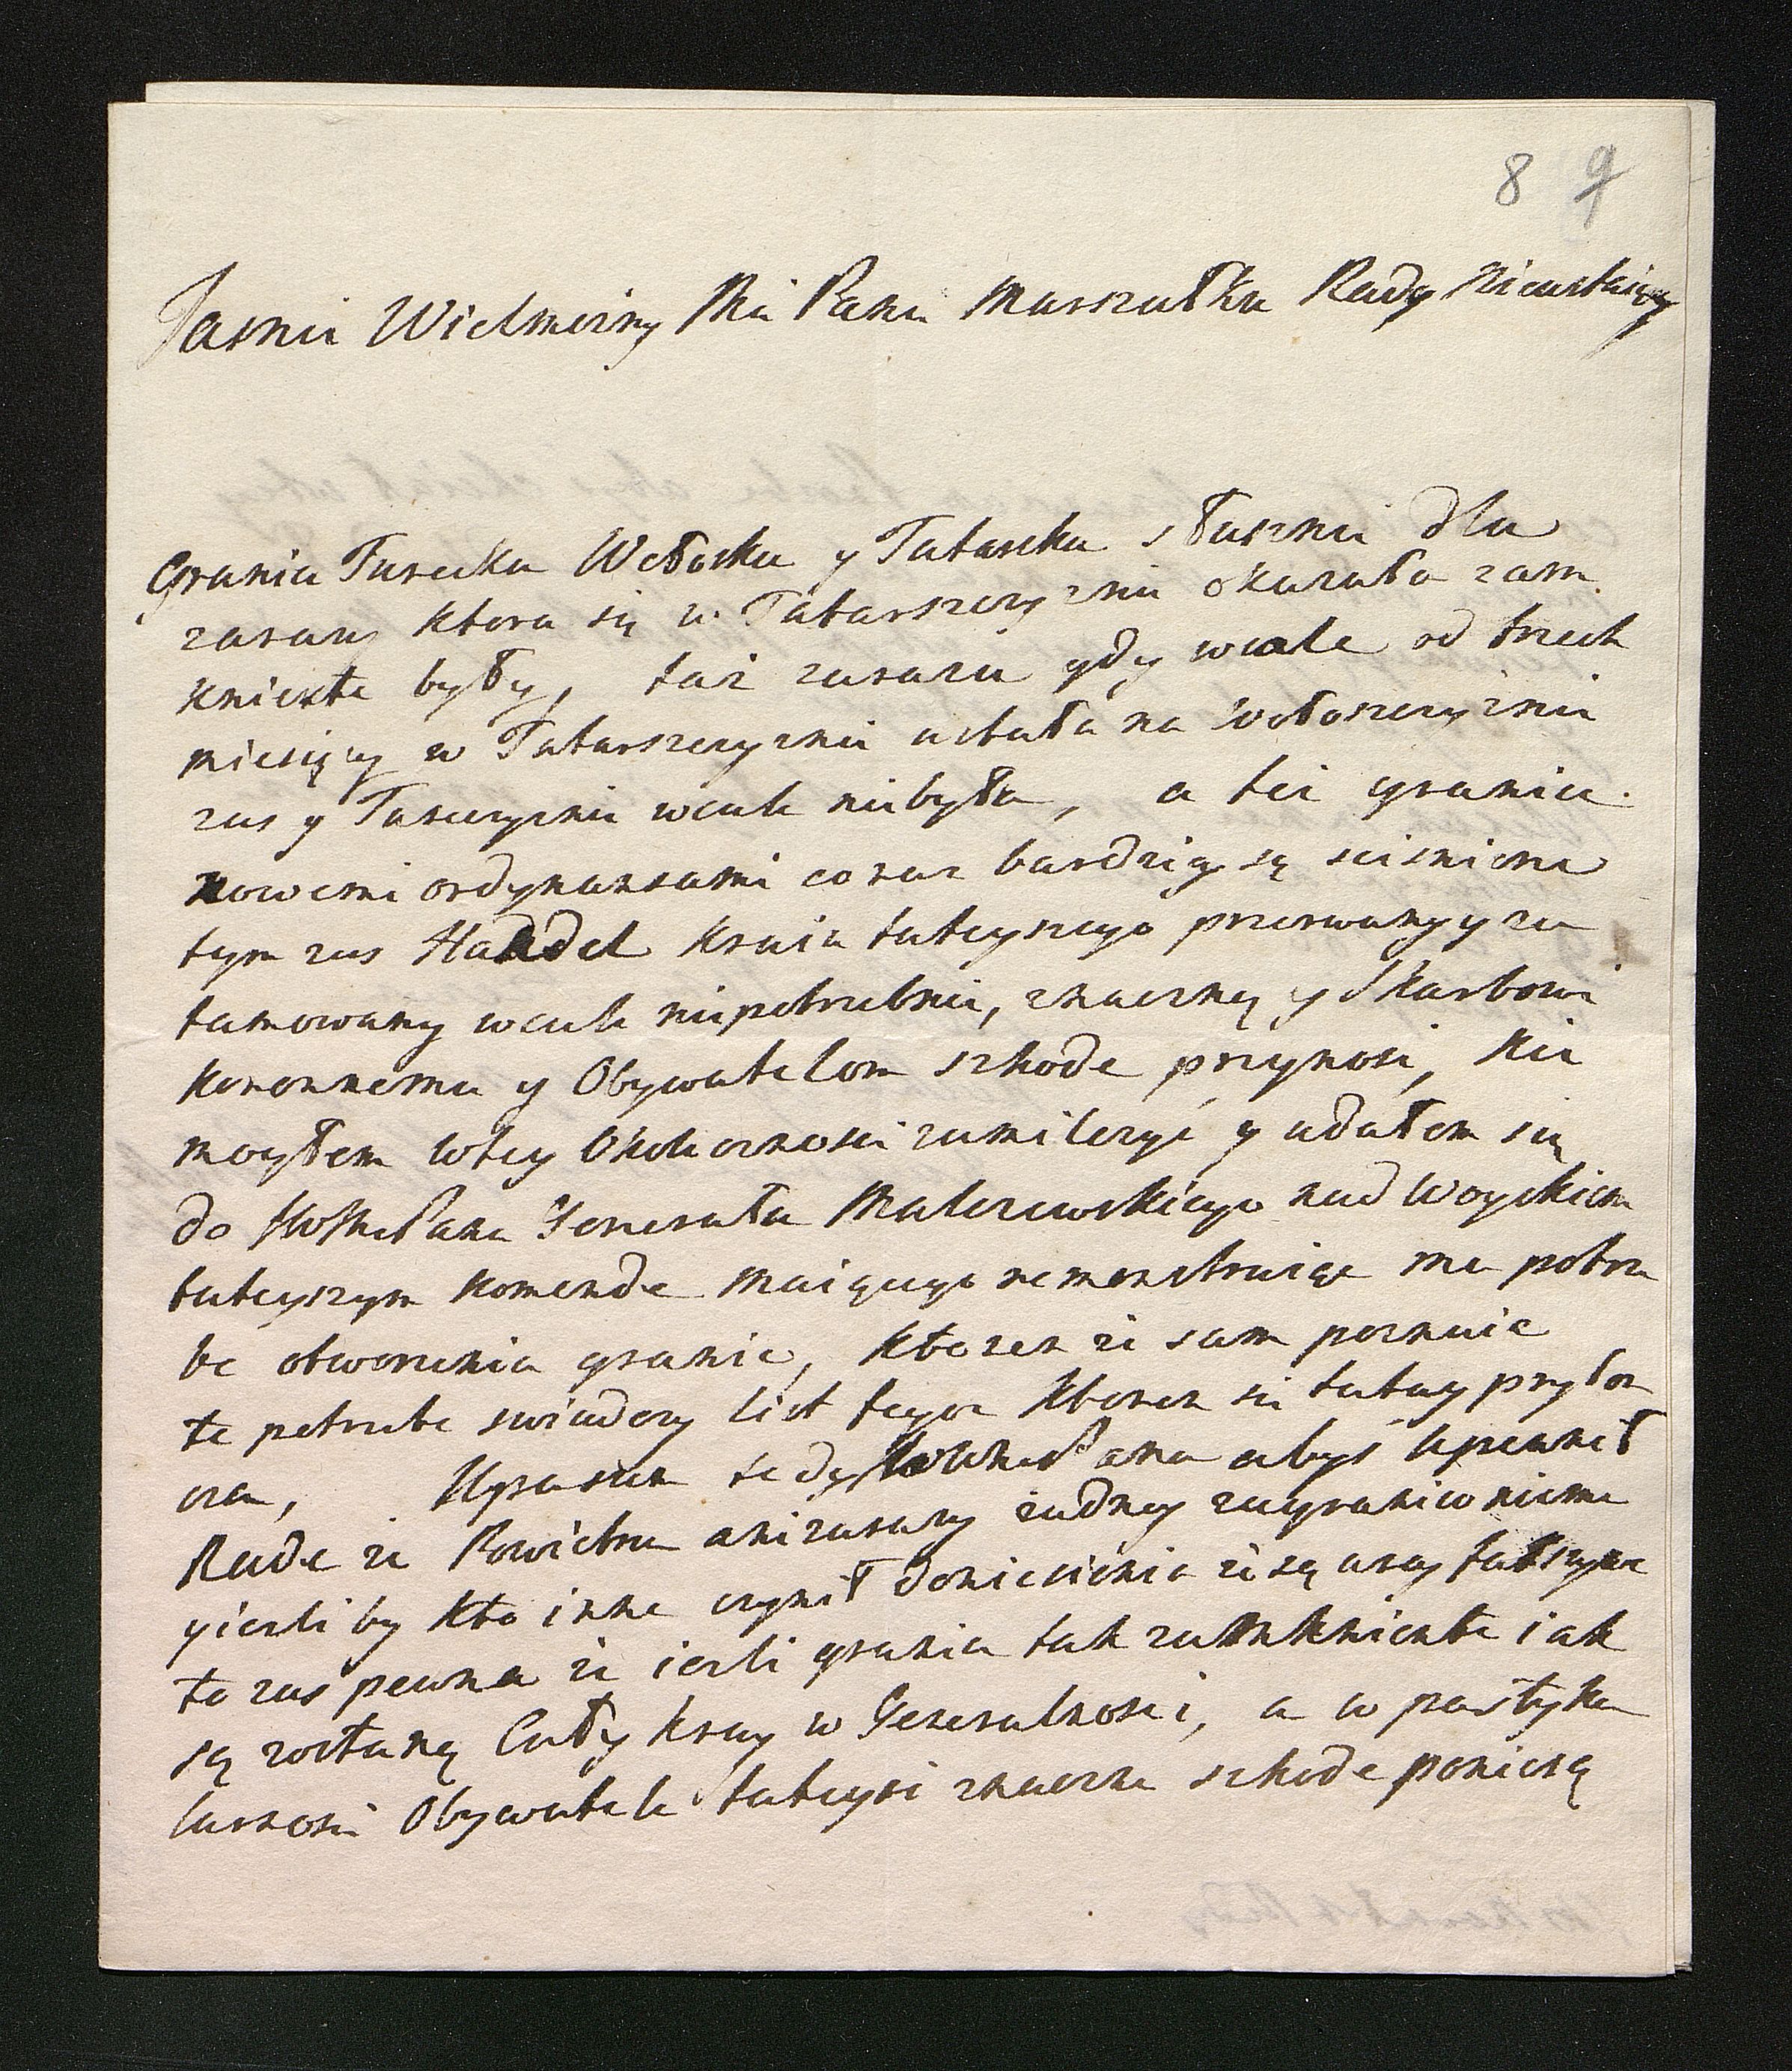 8 9
Jasnie Wielmozny Mci Panie Marszałku Rady Nieustaiący
Granica Turecka Wołoska y Tatarska słusznie dla
zarazy ktora się w Tatarszczyznie okazała zam
knięte były, taż zaraza gdy wcale od trzech
miesięcy w Tatarszczyznie ustała na Wołoszczyznie
zas y Tureczyznie wcale niebyła, a też granice
nowemi ordynansami coraz bardziey są scisnione
tym zas Handel kraiu tuteyszego przerwany y za
tamowany wcale niepotrzebnie, znaczną y Skarbowi
koronnemu y Obywatelom szkode przynosi, Nie
mogłem wtey Okolicznosci zamilczyć y udałem się
do JWJMci Pana Generała Malczewskiego nad Woyskiem
tuteyszym komende maiącego remonstruiąc mu potrze
be otworzenia granic, ktoren że sam poznaie
te potrzebe swiadczy list tegoz ktoren się tutay przyłon
cza, Upraszam tedy JWWMci Pana abys upewnił
Rade że Powietrza anizarazy żadney zagranicą niema
y iesli by kto inne czynił doniesienia że są arcy fałszywe
to zas pewna że iesli granice tak zamkniente iak
są zostaną Cały kray w Generalnosci, a w partyku
larnosci Obywatele tuteysi znaczne szkode poniosą